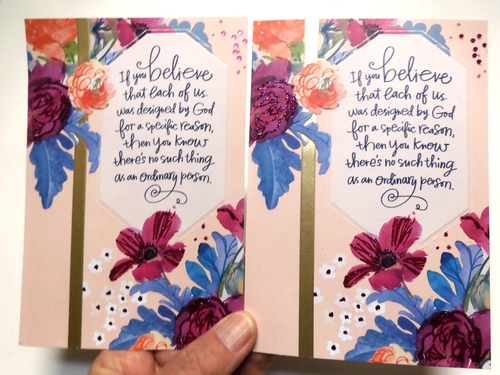 If you believe
that each of us
was designed by God
for a specific reason,
then you know
there's no such thing
as an ordinary person.
If you believe
that each of us
was designed by God
for a specific reason,
then you know
there's no such thing
as an ordinary person.